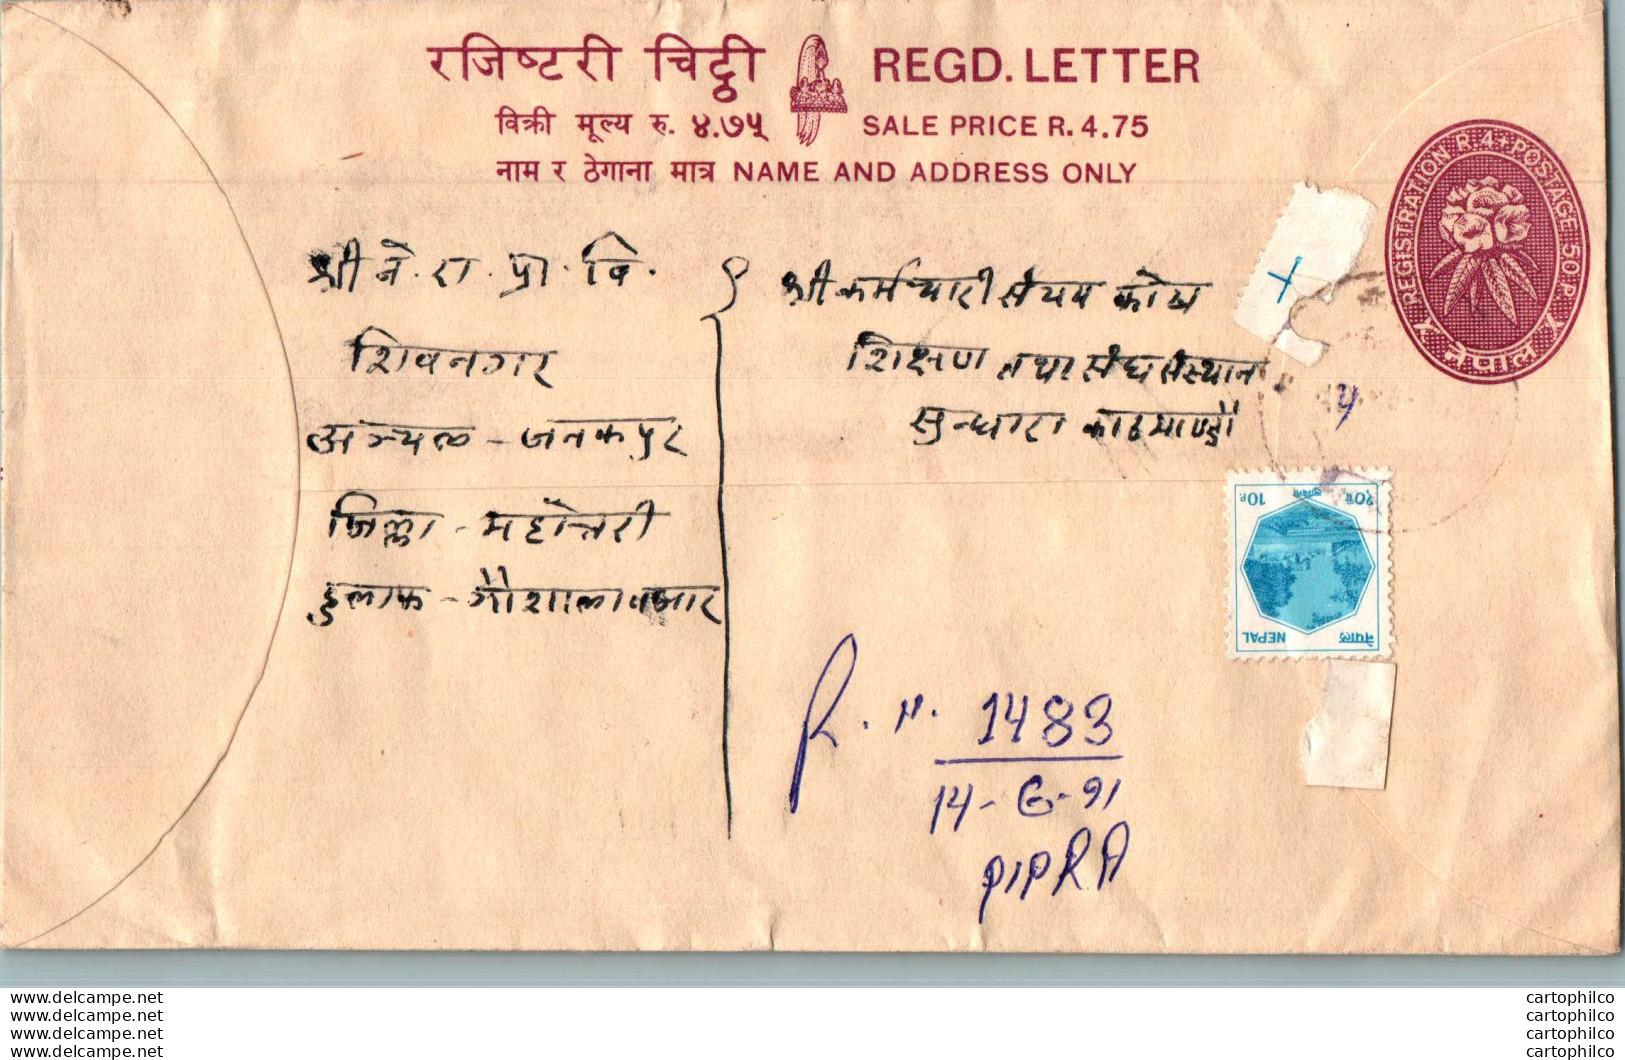 रजिष्टरी चिट्ठी REGD. LETTER
विक्री मूल्य रु. ४.७५ SALE PRICE R. 4.75
नाम र ठेगाना मात्र NAME AND ADDRESS ONLY
REGISTRATION R 4 + POSTAGE 50 P.
नेपाल
श्री ने. रा. प्रा. वि.
शिवनगर
अन्चल - जनकपुर
जिल्ला - महोत्तरी
हुलाक - गौशाला बजार
श्री कर्मचारी संचय कोष
शिक्षण तथा संघ संस्थान
सुन्धारा काठमाण्डौ
१०पै 10P
लुम्बिनी
नेपाल NEPAL
R. N. 1483
14-6-91
PIPRA
www.delcampe.net
www.delcampe.net
www.delcampe.net
www.delcampe.net
cartophilco
cartophilco
cartophilco
cartophilco